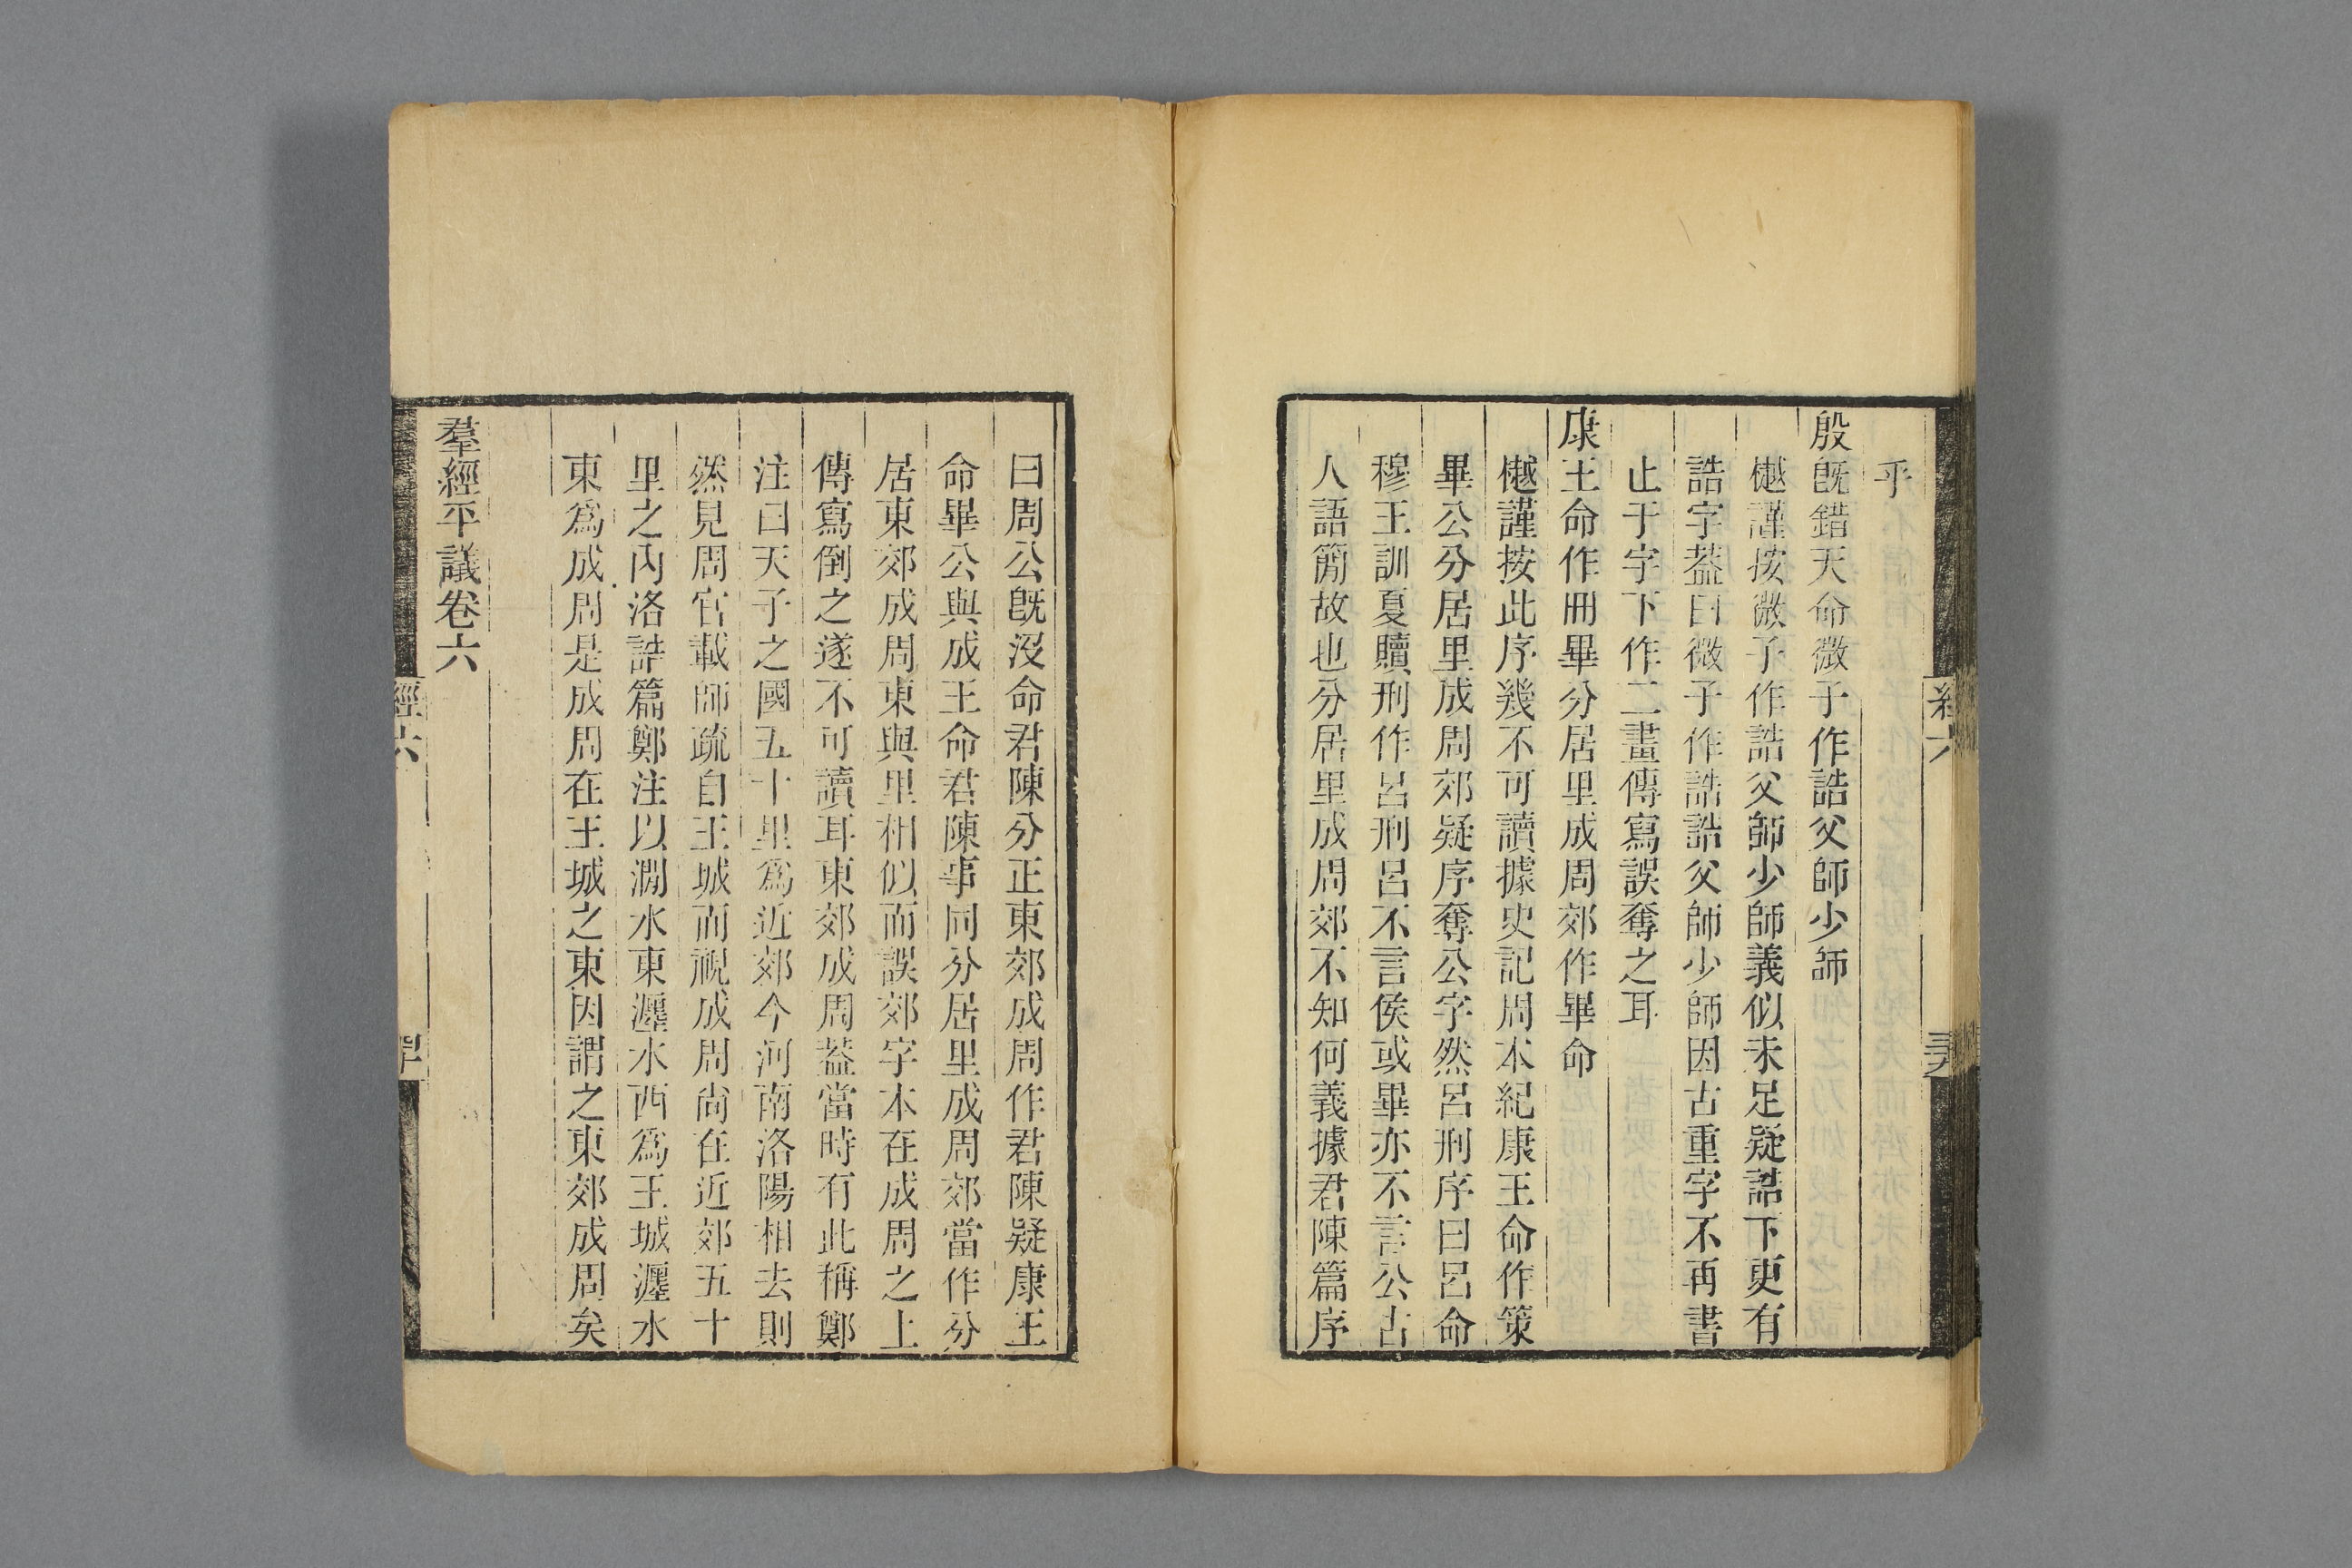 乎
殷旣錯天命微子作誥父師少師
樾謹按微子作誥父師少師義似未足疑誥下更有
誥字葢曰微子作誥誥父師少師因古重字不再書
止于字下作二畫傳寫誤奪之耳
康王命作冊畢分居里成周郊作畢命
樾謹按此序幾不可讀據史記周本紀康王命作策
畢公分居里成周郊疑序奪公字然呂刑序曰呂命
穆王訓夏贖刑作呂刑呂不言侯或畢亦不言公古
人語簡故也分居里成周郊不知何義據君陳篇序
曰周公旣沒命君陳分正東郊成周作君陳疑康王
命畢公與成王命君陳事同分居里成周郊當作分
居東郊成周東與里相似而誤郊字本在成周之上
傳寫倒之遂不可讀耳東郊成周葢當時有此稱鄭
注曰天子之國五十里爲近郊今河南洛陽相去則
然見周官載師疏自王城而視成周尙在近郊五十
里之內洛誥篇鄭注以澗水東瀍水西爲王城瀍水
東爲成周是成周在王城之東因謂之東郊成周矣
羣經平議卷六
經六